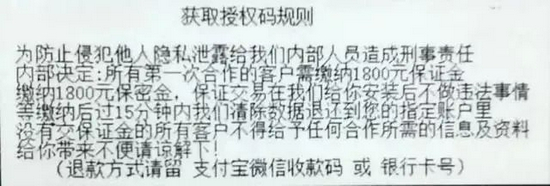 获取授权码规则
为防止侵犯他人隐私泄露给我们内部人员造成刑事责任
内部决定:所有第一次合作的客户需缴纳1800元保证金
缴纳1800元保密金，保证交易在我们给你安装后不做违法事情
等缴纳后过15分钟内我们清除数据退还到您的指定账户里
没有交保证金的所有客户不得给予任何合作所需的信息及资料
给你带来不便请谅解下！
(退款方式请留 支付宝微信收款码 或 银行卡号)